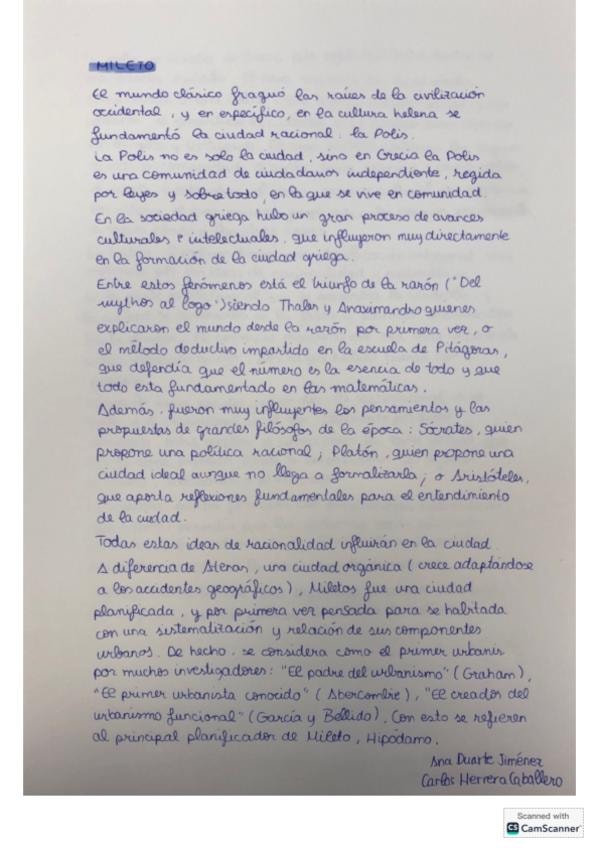 MILETO
El mundo clásico fraguó las raíces de la civilización
occidental, y en específico, en la cultura helena se
fundamentó la ciudad racional: la Polis.
La Polis no es solo la ciudad, sino en Grecia la Polis
es una comunidad de ciudadanos independiente, regida
por leyes y sobre todo, en la que se vive en comunidad.
En la sociedad griega hubo un gran proceso de avances
culturales e intelectuales, que influyeron muy directamente
en la formación de la ciudad griega.
Entre estos fenómenos está el triunfo de la razón ("Del
mythos al logo") siendo Thales y Anaximandro quienes
explicaron el mundo desde la razón por primera vez, o
el método deductivo impartido en la escuela de Pitágoras,
que defendía que el número es la esencia de todo y que
todo esta fundamentado en las matemáticas.
Además, fueron muy influyentes los pensamientos y las
propuestas de grandes filósofos de la época: Sócrates, quien
propone una política racional; Platón, quien propone una
ciudad ideal aunque no llega a formalizarla; o Aristóteles,
que aporta reflexiones fundamentales para el entendimiento
de la ciudad.
Todas estas ideas de racionalidad influirán en la ciudad.
A diferencia de Atenas, una ciudad orgánica (crece adaptándose
a los accidentes geográficos), Miletos fue una ciudad
planificada, y por primera vez pensada para se habitada
con una sistematización y relación de sus componentes
urbanos. De hecho, se considera como el primer urbanis
por muchos investigadores: "El padre del urbanismo" (Graham),
"El primer urbanista conocido" (Abercombie), "El creador del
urbanismo funcional" (García y Bellido). Con esto se refieren
al principal planificador de Mileto, Hipódamo.
Ana Duarte Jiménez
Carlos Herrera Caballero
Scanned with
CS CamScanner